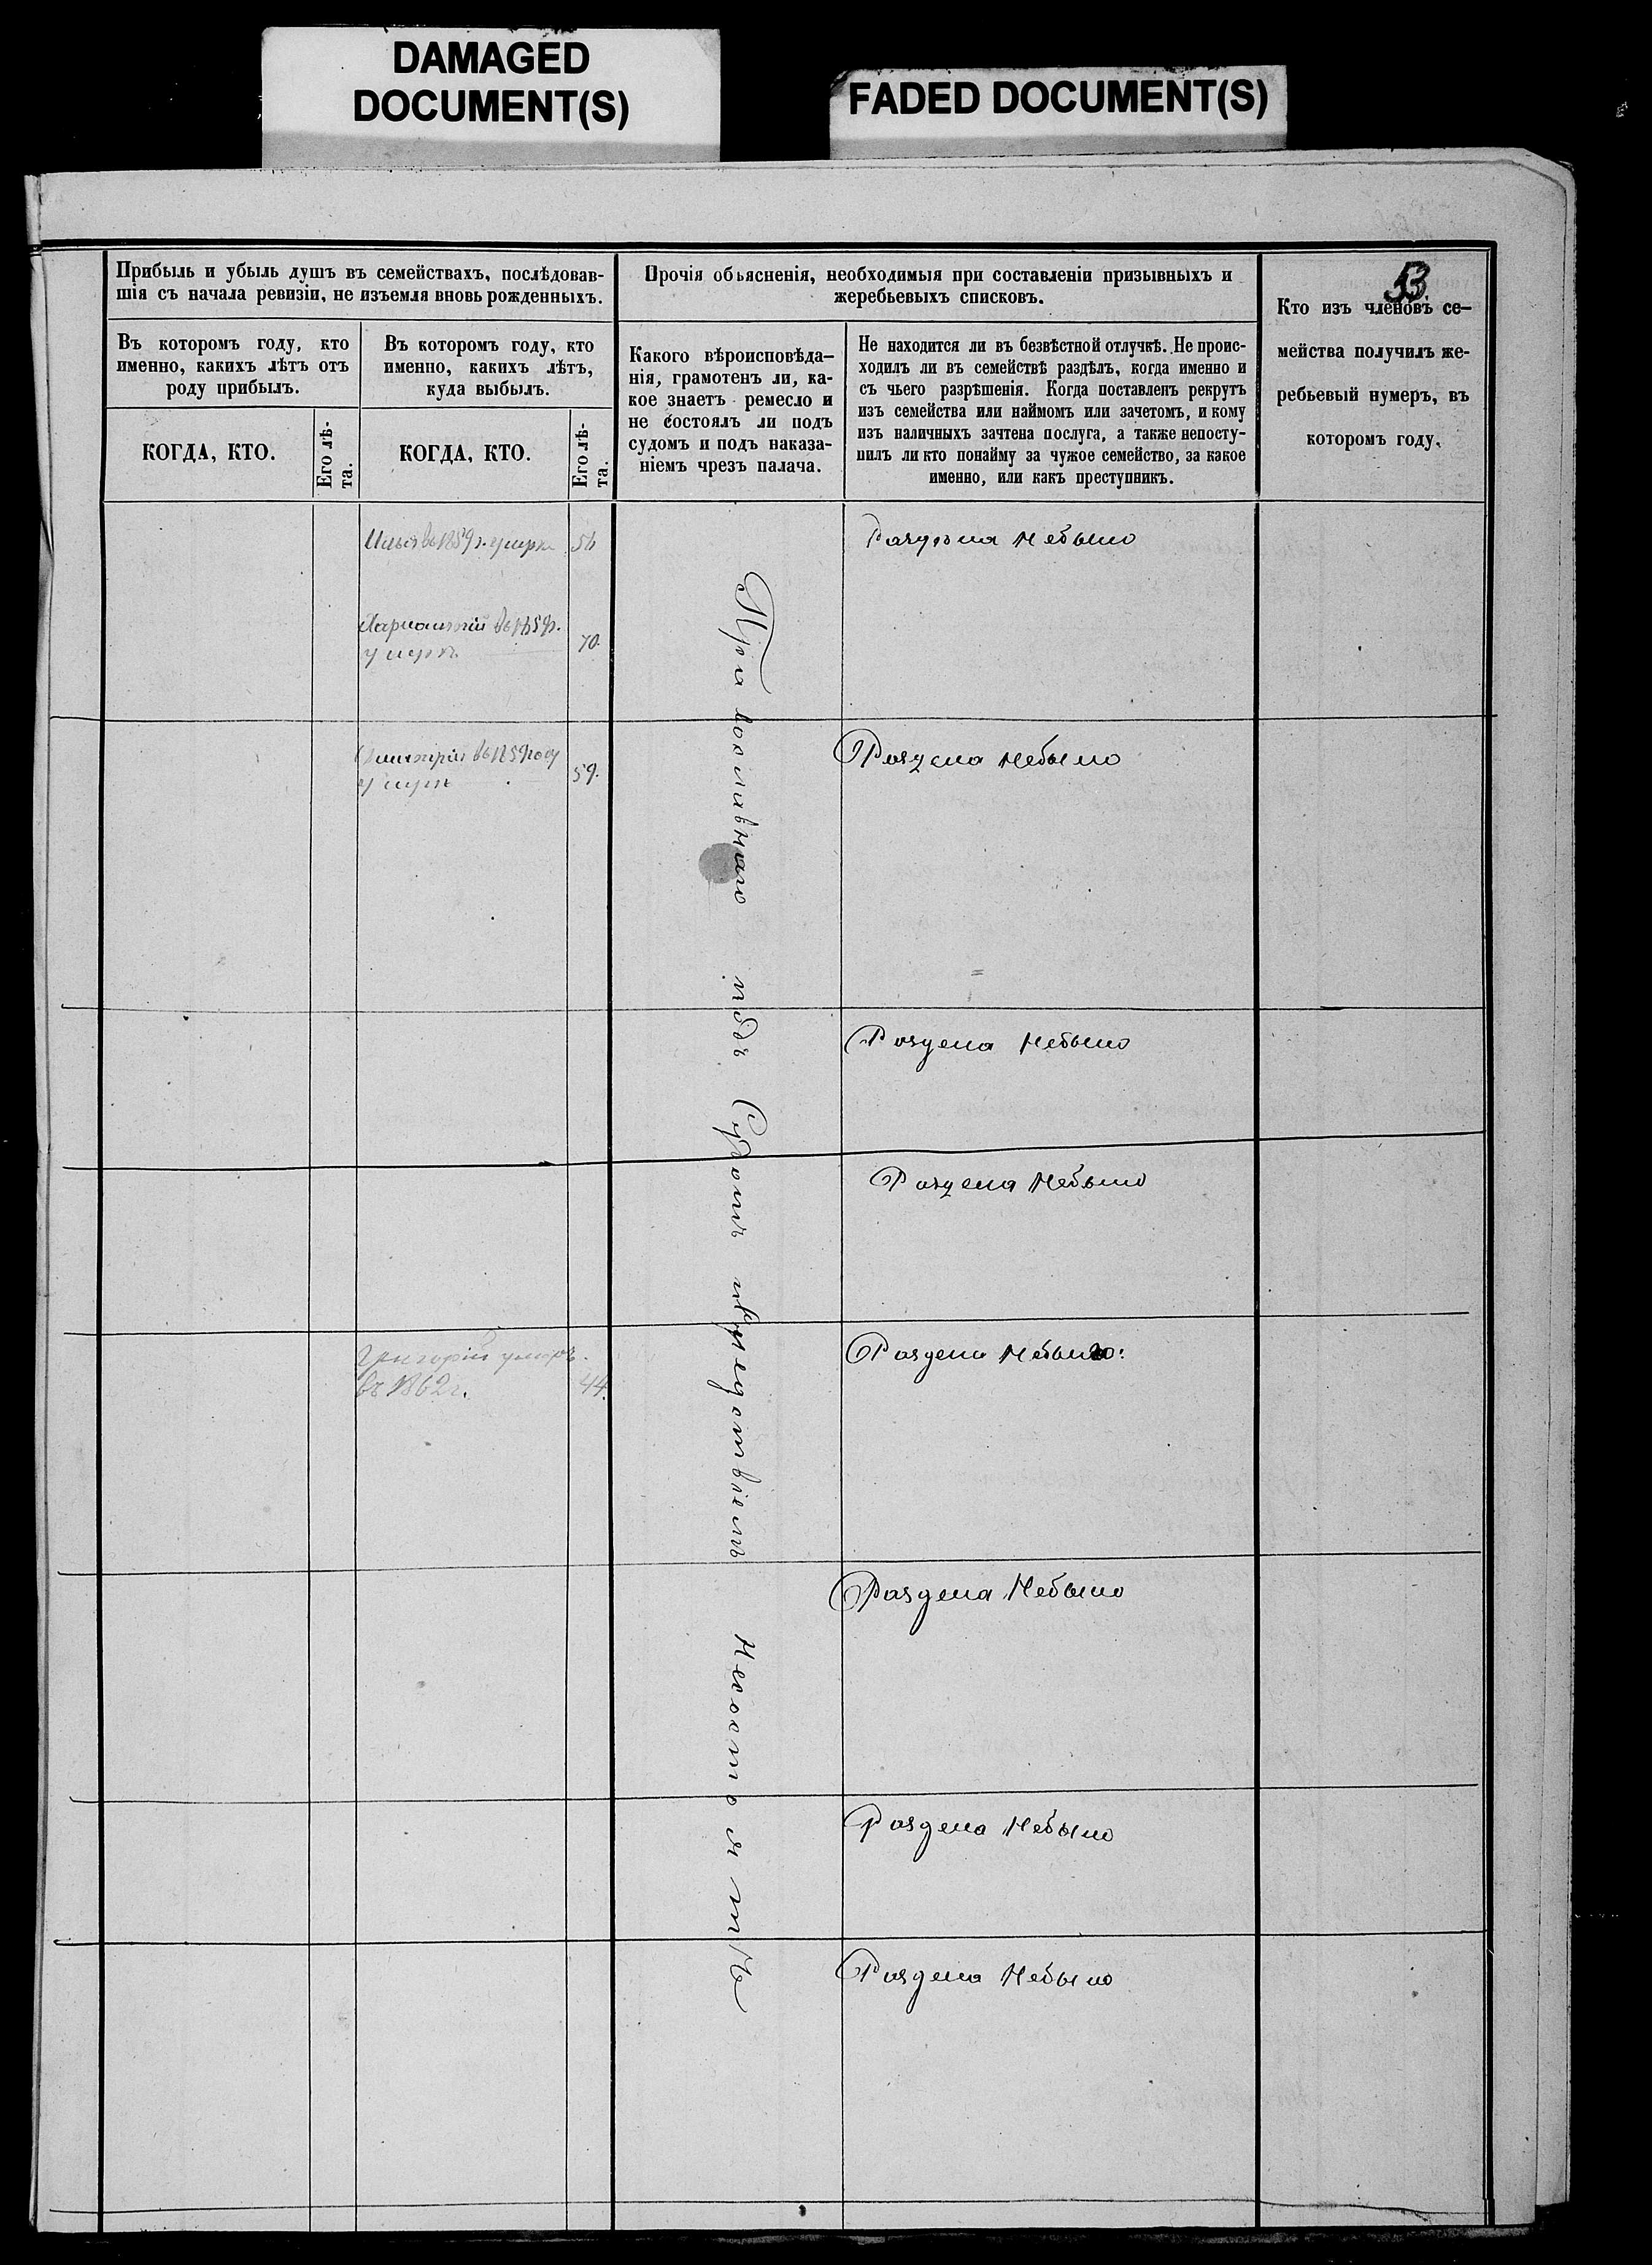 DAMAGED
DOCUMENT(S)
FADED DOCUMENT(S)
53
Прибыль и убыль душъ въ семействахъ, послѣдовав-
шія съ начала ревизіи, не изъемля вновь рожденныхъ.
Въ которомъ году, кто
именно, какихъ лѣтъ отъ
роду прибылъ.
КОГДА, КТО.
Его лѣ-
та.
Въ которомъ году, кто
именно, какихъ лѣтъ,
куда выбылъ.
КОГДА, КТО.
Его лѣ-
та.
Прочія объясненія, необходимыя при составленіи призывныхъ и
жеребьевыхъ списковъ.
Какого вѣроисповѣда-
нія, грамотенъ ли, ка-
кое знаетъ ремесло и
не состоялъ ли подъ
судомъ и подъ наказа-
ніемъ чрезъ палача.
Не находится ли въ безвѣстной отлучкѣ. Не проис-
ходилъ ли въ семействѣ раздѣлъ, когда именно и
съ чьего разрѣшенія. Когда поставленъ рекрутъ
изъ семейства или наймомъ или зачетомъ, и кому
изъ наличныхъ зачтена послуга, а также непосту-
пилъ ли кто понайму за чужое семейство, за какое
именно, или какъ преступникъ.
Кто изъ членовъ се-
мейства получилъ же-
ребьевый нумеръ, въ
которомъ году.
Илья въ 1859 г. умеръ
Раздѣла Небыло
въ 1859г.
умеръ
70.
Дмитрій въ 1859 году
умеръ
59.
Раздела Небыло
Раздела Небыло
Раздела Небыло
Григорій умеръ.
въ 1862 г.
44.
Раздела Небыло:
Раздела Небыло
Раздела Небыло
Раздела Небыло
Православнаго подъ Судомъ и Следствіемъ Несостоитъ